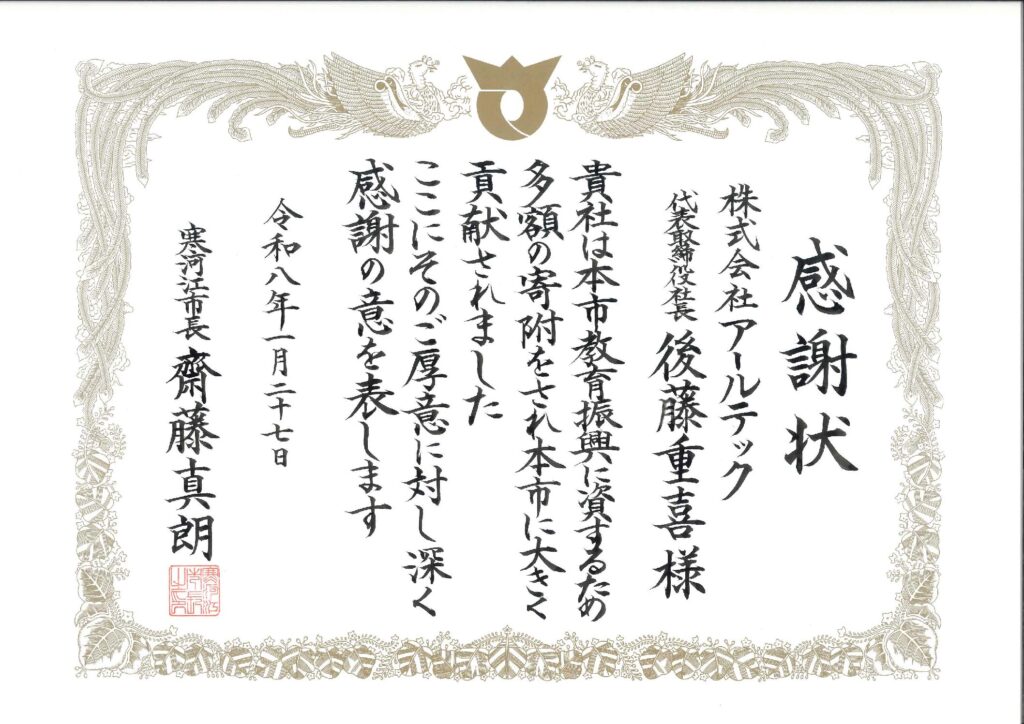 感謝状
株式会社アールテック
代表取締役社長 後藤重喜様
貴社は本市教育振興に資するため
多額の寄附をされ本市に大きく
貢献されました
ここにそのご厚意に対し深く
感謝の意を表します
令和八年一月二十七日
寒河江市長 齋藤真朗